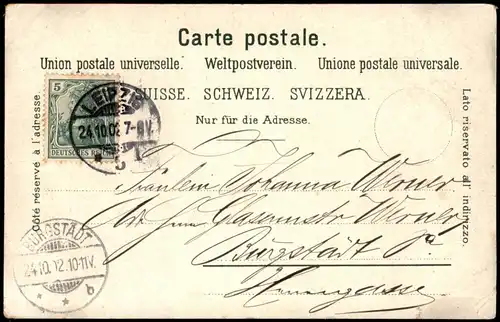 Carte postale.
Union postale universelle. Weltpostverein. Unione postale universale.
SUISSE. SCHWEIZ. SVIZZERA.
Nur für die Adresse.
Côté réservé à l'adresse.
Lato riservato all' indirizzo.
5
DEUTSCHES REICH
LEIPZIG
24.10.02 7-8V.
BURGSTÄDT
24.10.02.10-11V.
b
Fräulein Johanna Werner
Adr. Herrn Glasermstr Werner
Burgstädt